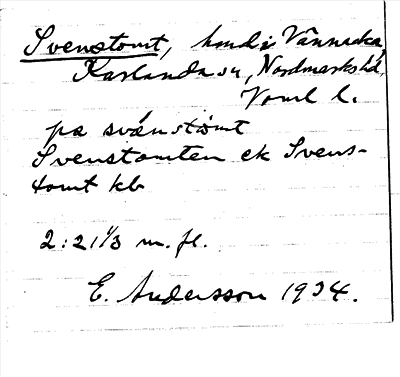 Svenstomt, hmd i Vännacka,
Karlanda sn, Nordmarks hd,
Vrml l.
pa svä̀nstòmt
Svenstomten ek Svens-
tomt kb
2:21 1/3 m. fl.
E. Andersson 1934.